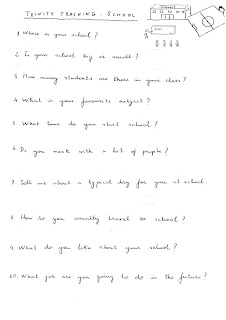 TRINITY TRAINING: SCHOOL
1. Where is your school?
2. Is your school big or small?
3. How many students are there in your class?
4. What is your favourite subject?
5. What time do you start school?
6. Do you work with a lot of people?
7. Tell me about a typical day for you at school.
8. How do you usually travel to school?
9. What do you like about your school?
10. What job are you going to do in the future?